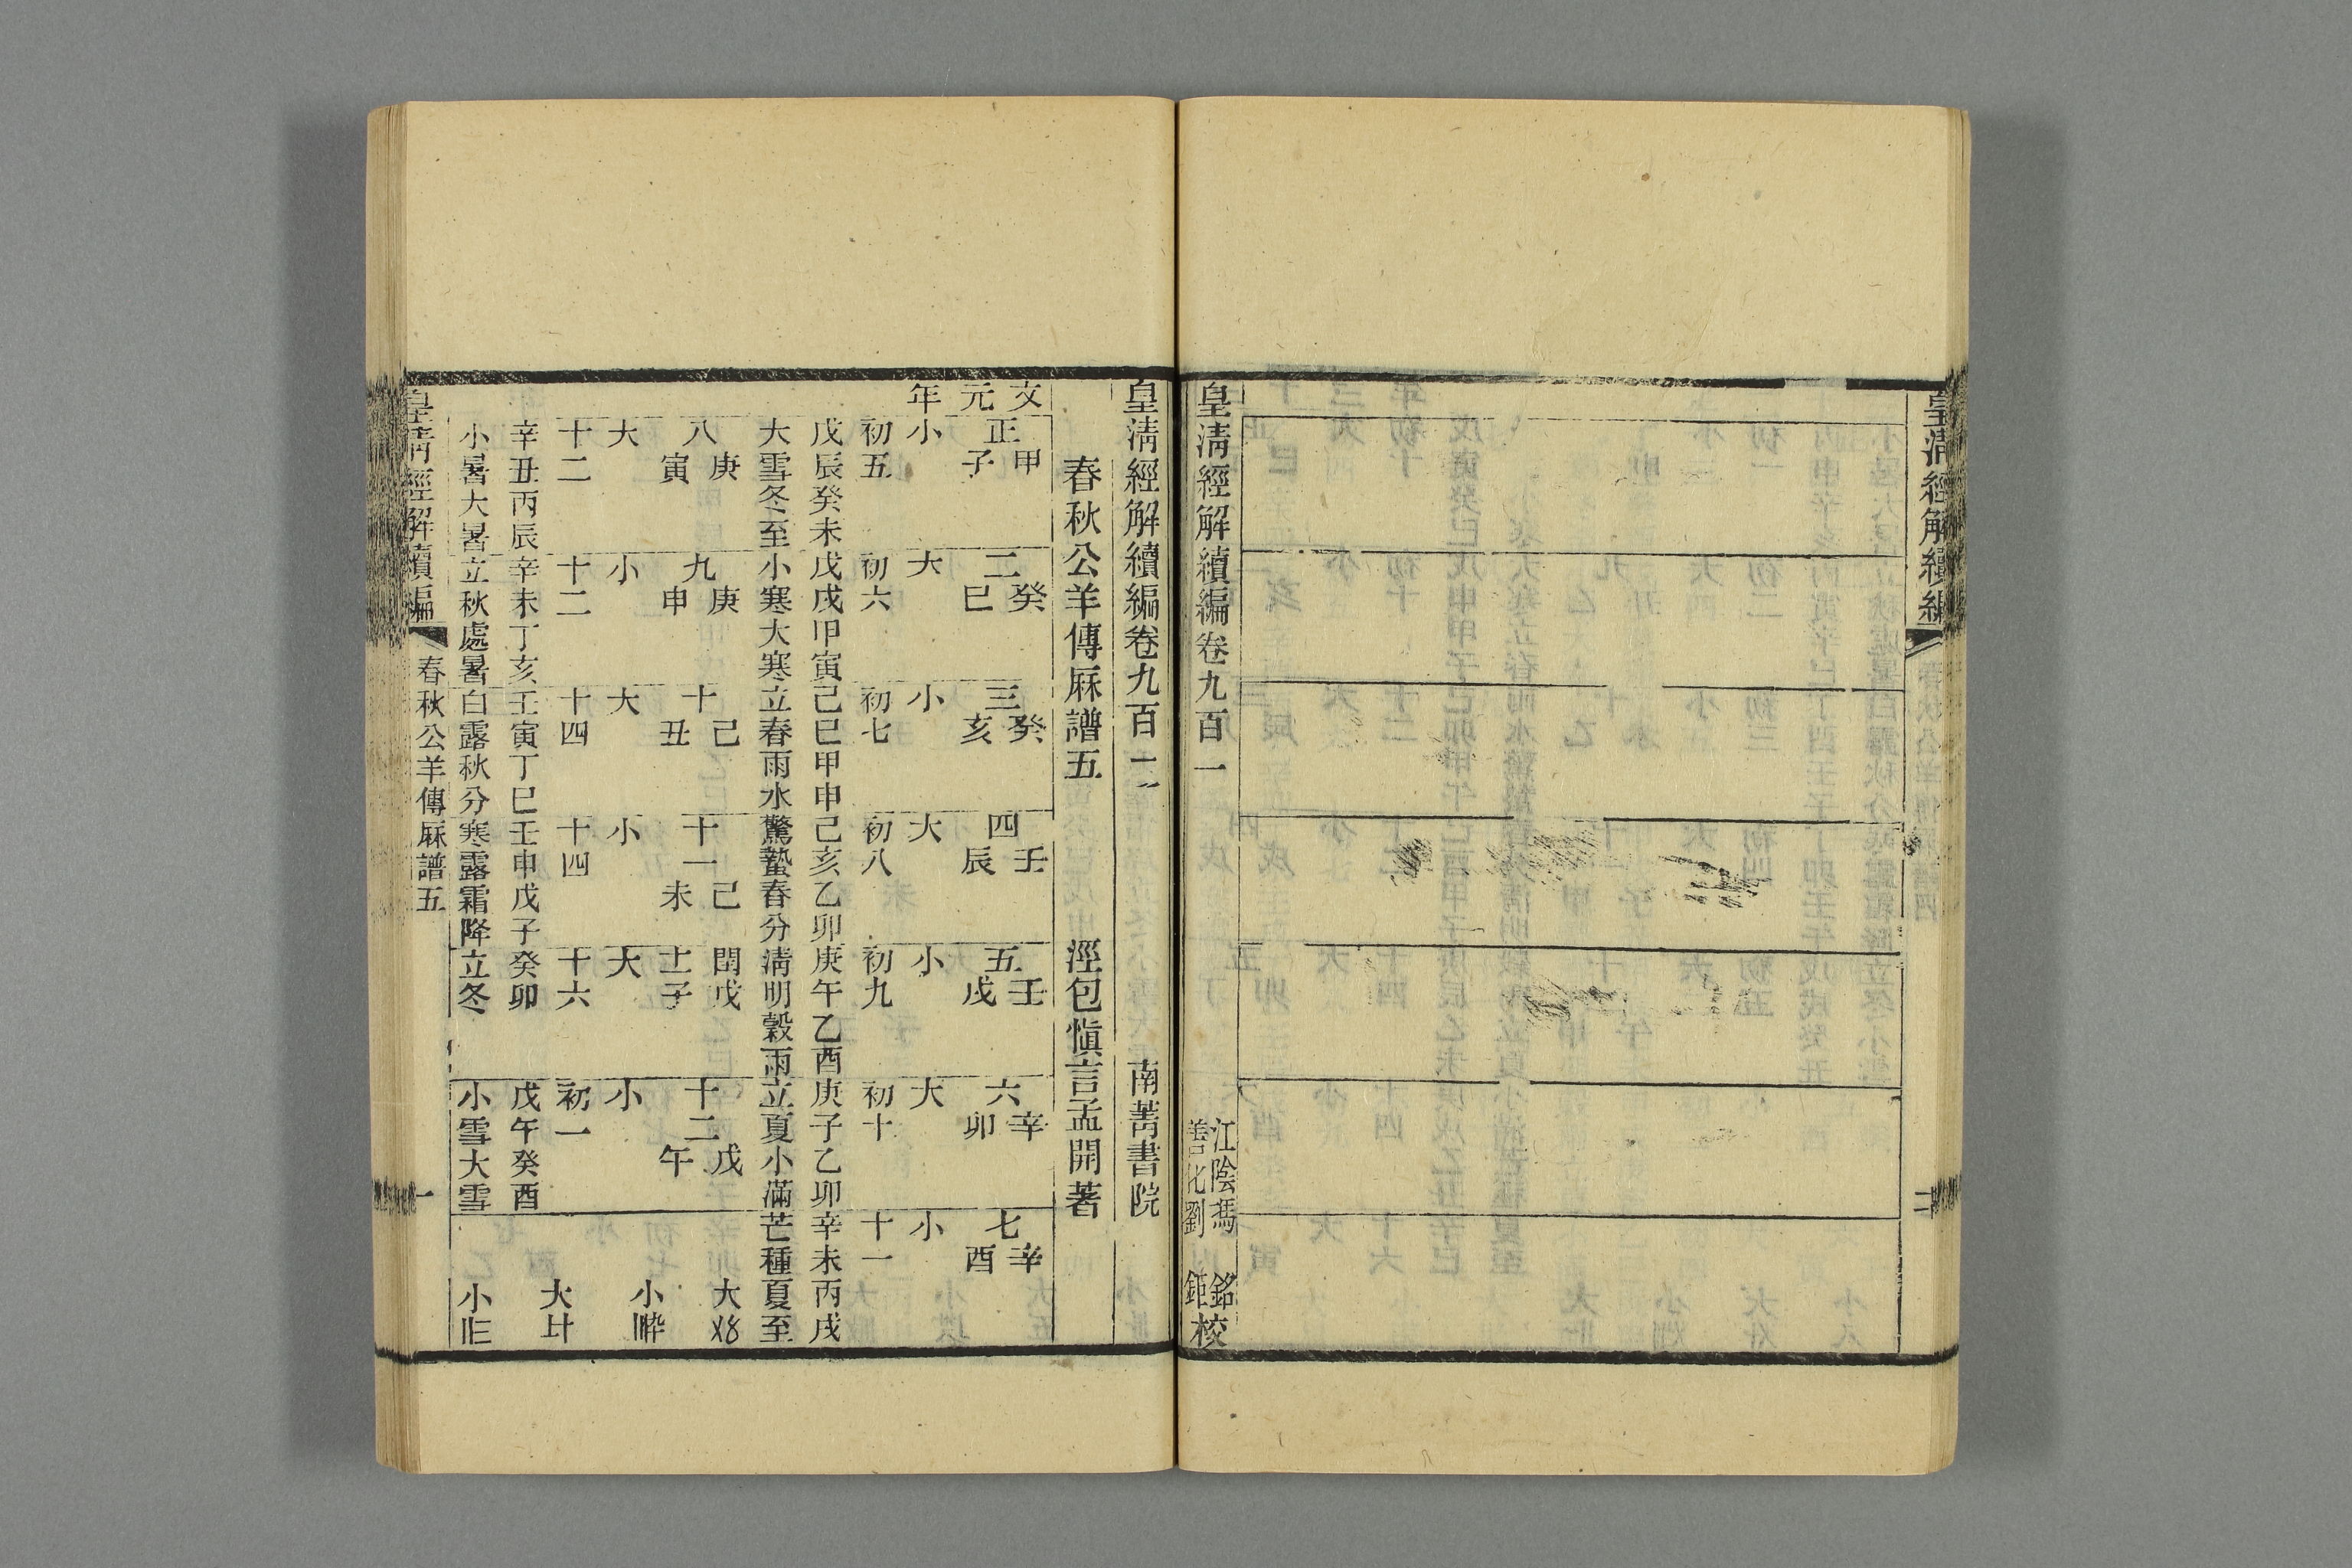 皇清經解續編
二十
皇清經解續編卷九百一
江陰馮銘
善化劉鉅校
皇清經解續編卷九百二
南菁書院
春秋公羊傳厤譜五
涇包愼言孟開著
文元年
正甲子
二癸巳
三癸亥
四壬辰
五壬戌
六辛卯
七辛酉
小
大
小
大
小
大
小
初五
初六
初七
初八
初九
初十
十一
戊辰癸未
戊戌甲寅
己巳甲申
己亥乙卯
庚午乙酉
庚子乙卯
辛未丙戌
大雪冬至
小寒大寒
立春雨水
驚蟄春分
清明穀雨
立夏小滿
芒種夏至
八庚寅
九庚申
十己丑
十一己未
閏十一戊子
十二戊午
大
小
大
小
大
小
十二
十二
十四
十四
十六
初一
辛丑丙辰
辛未丁亥
壬寅丁巳
壬申戊子
癸卯
戊午癸酉
小暑大暑
立秋處暑
白露秋分
寒露霜降
立冬
小雪大雪
大
小
大
小
皇清經解續編
春秋公羊傳厤譜五
一